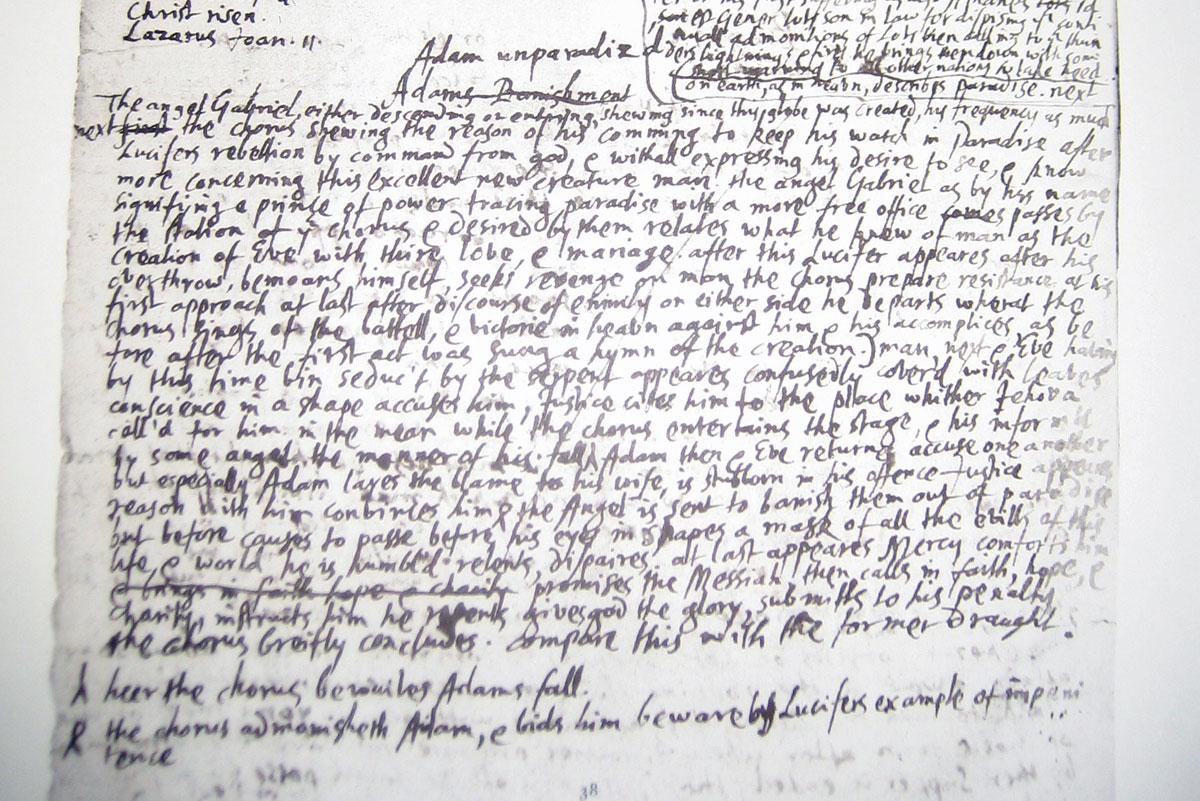 Christ risen.
Lazarus Joan. 11.
Gener Lots son in law for dispising ye conti
nuall admonitions of Lots then calling to ye thun
ders lightnings & fires he brings them down with some
warning to all other nations to take heed
on earth, as in heavn, describes Paradise. next
Adam unparadiz'd
Adams Banishment
The angel Gabriel, either descending or entring, shewing since this globe was created, his frequency as much
next first the chorus shewing the reason of his comming to keep his watch in Paradise after
Lucifers rebellion by command from god, & withall expressing his desire to see, & know
more concerning this excellent new creature man. the angel Gabriel as by his name
signifying a prince of power tracing paradise with a more free office comes passes by
the station of ye chorus & desired by them relates what he knew of man as the
creation of Eve with thire love, & mariage. after this Lucifer appeares after his
overthrow, bemoans himself, seeks revenge on man the chorus prepare resistance at his
first approach at last after discourse of enmity on either side he departs wherat the
chorus sings of the battell, & victorie in heavn against him & his accomplices, as be
fore after the first act was sung a hymn of the creation.) man next & Eve having
by this time bin seduc't by the serpent appeares confusedly cover'd with leaves
conscience in a shape accuses him, Justice cites him to the place whither Jehova
call'd for him in the mean while the chorus entertains the stage, & his inform'd
by some angel the manner of his fall Adam then & Eve returne accuse one another
but especially Adam layes the blame to his wife, is stubborn in his offence Justice appeares
reason with him convinces him the Angel is sent to banish them out of paradise
but before causes to passe before his eyes in shapes a mask of all the evills of this
life, & world he is humbl'd relents, dispaires. at last appeares Mercy comforts him
& brings in faith hope & charity promises the Messiah, then calls in faith, hope, &
charity, instructs him he repents gives god the glory, submitts to his penalty
the chorus breifly concludes. compare this with the former draught.
heer the chorus bewailes Adams fall.
the chorus admonisheth Adam, & bids him beware by Lucifers example of impeni
tence
38